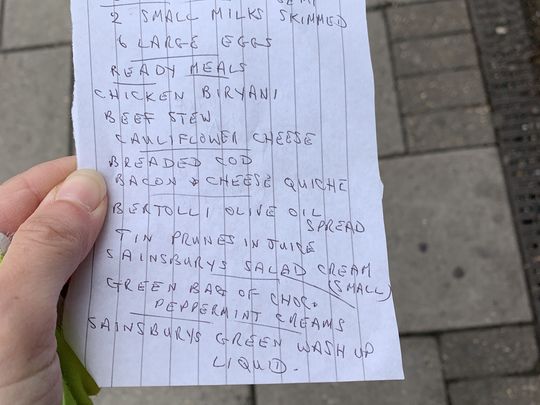 SEMI
2 SMALL MILKS SKIMMED
6 LARGE EGGS
READY MEALS
CHICKEN BIRYANI
BEEF STEW
CAULIFLOWER CHEESE
BREADED COD
BACON & CHEESE QUICHE
BERTOLLI OLIVE OIL
SPREAD
TIN PRUNES IN JUICE
SAINSBURYS SALAD CREAM
(SMALL)
GREEN BAG OF CHOC.
PEPPERMINT CREAMS
SAINSBURYS GREEN WASH UP
LIQUID.